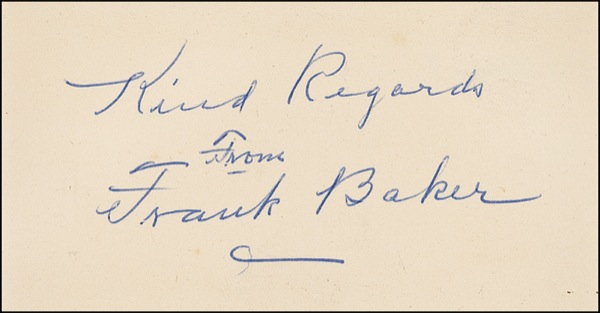 Kind Regards
From
Frank Baker